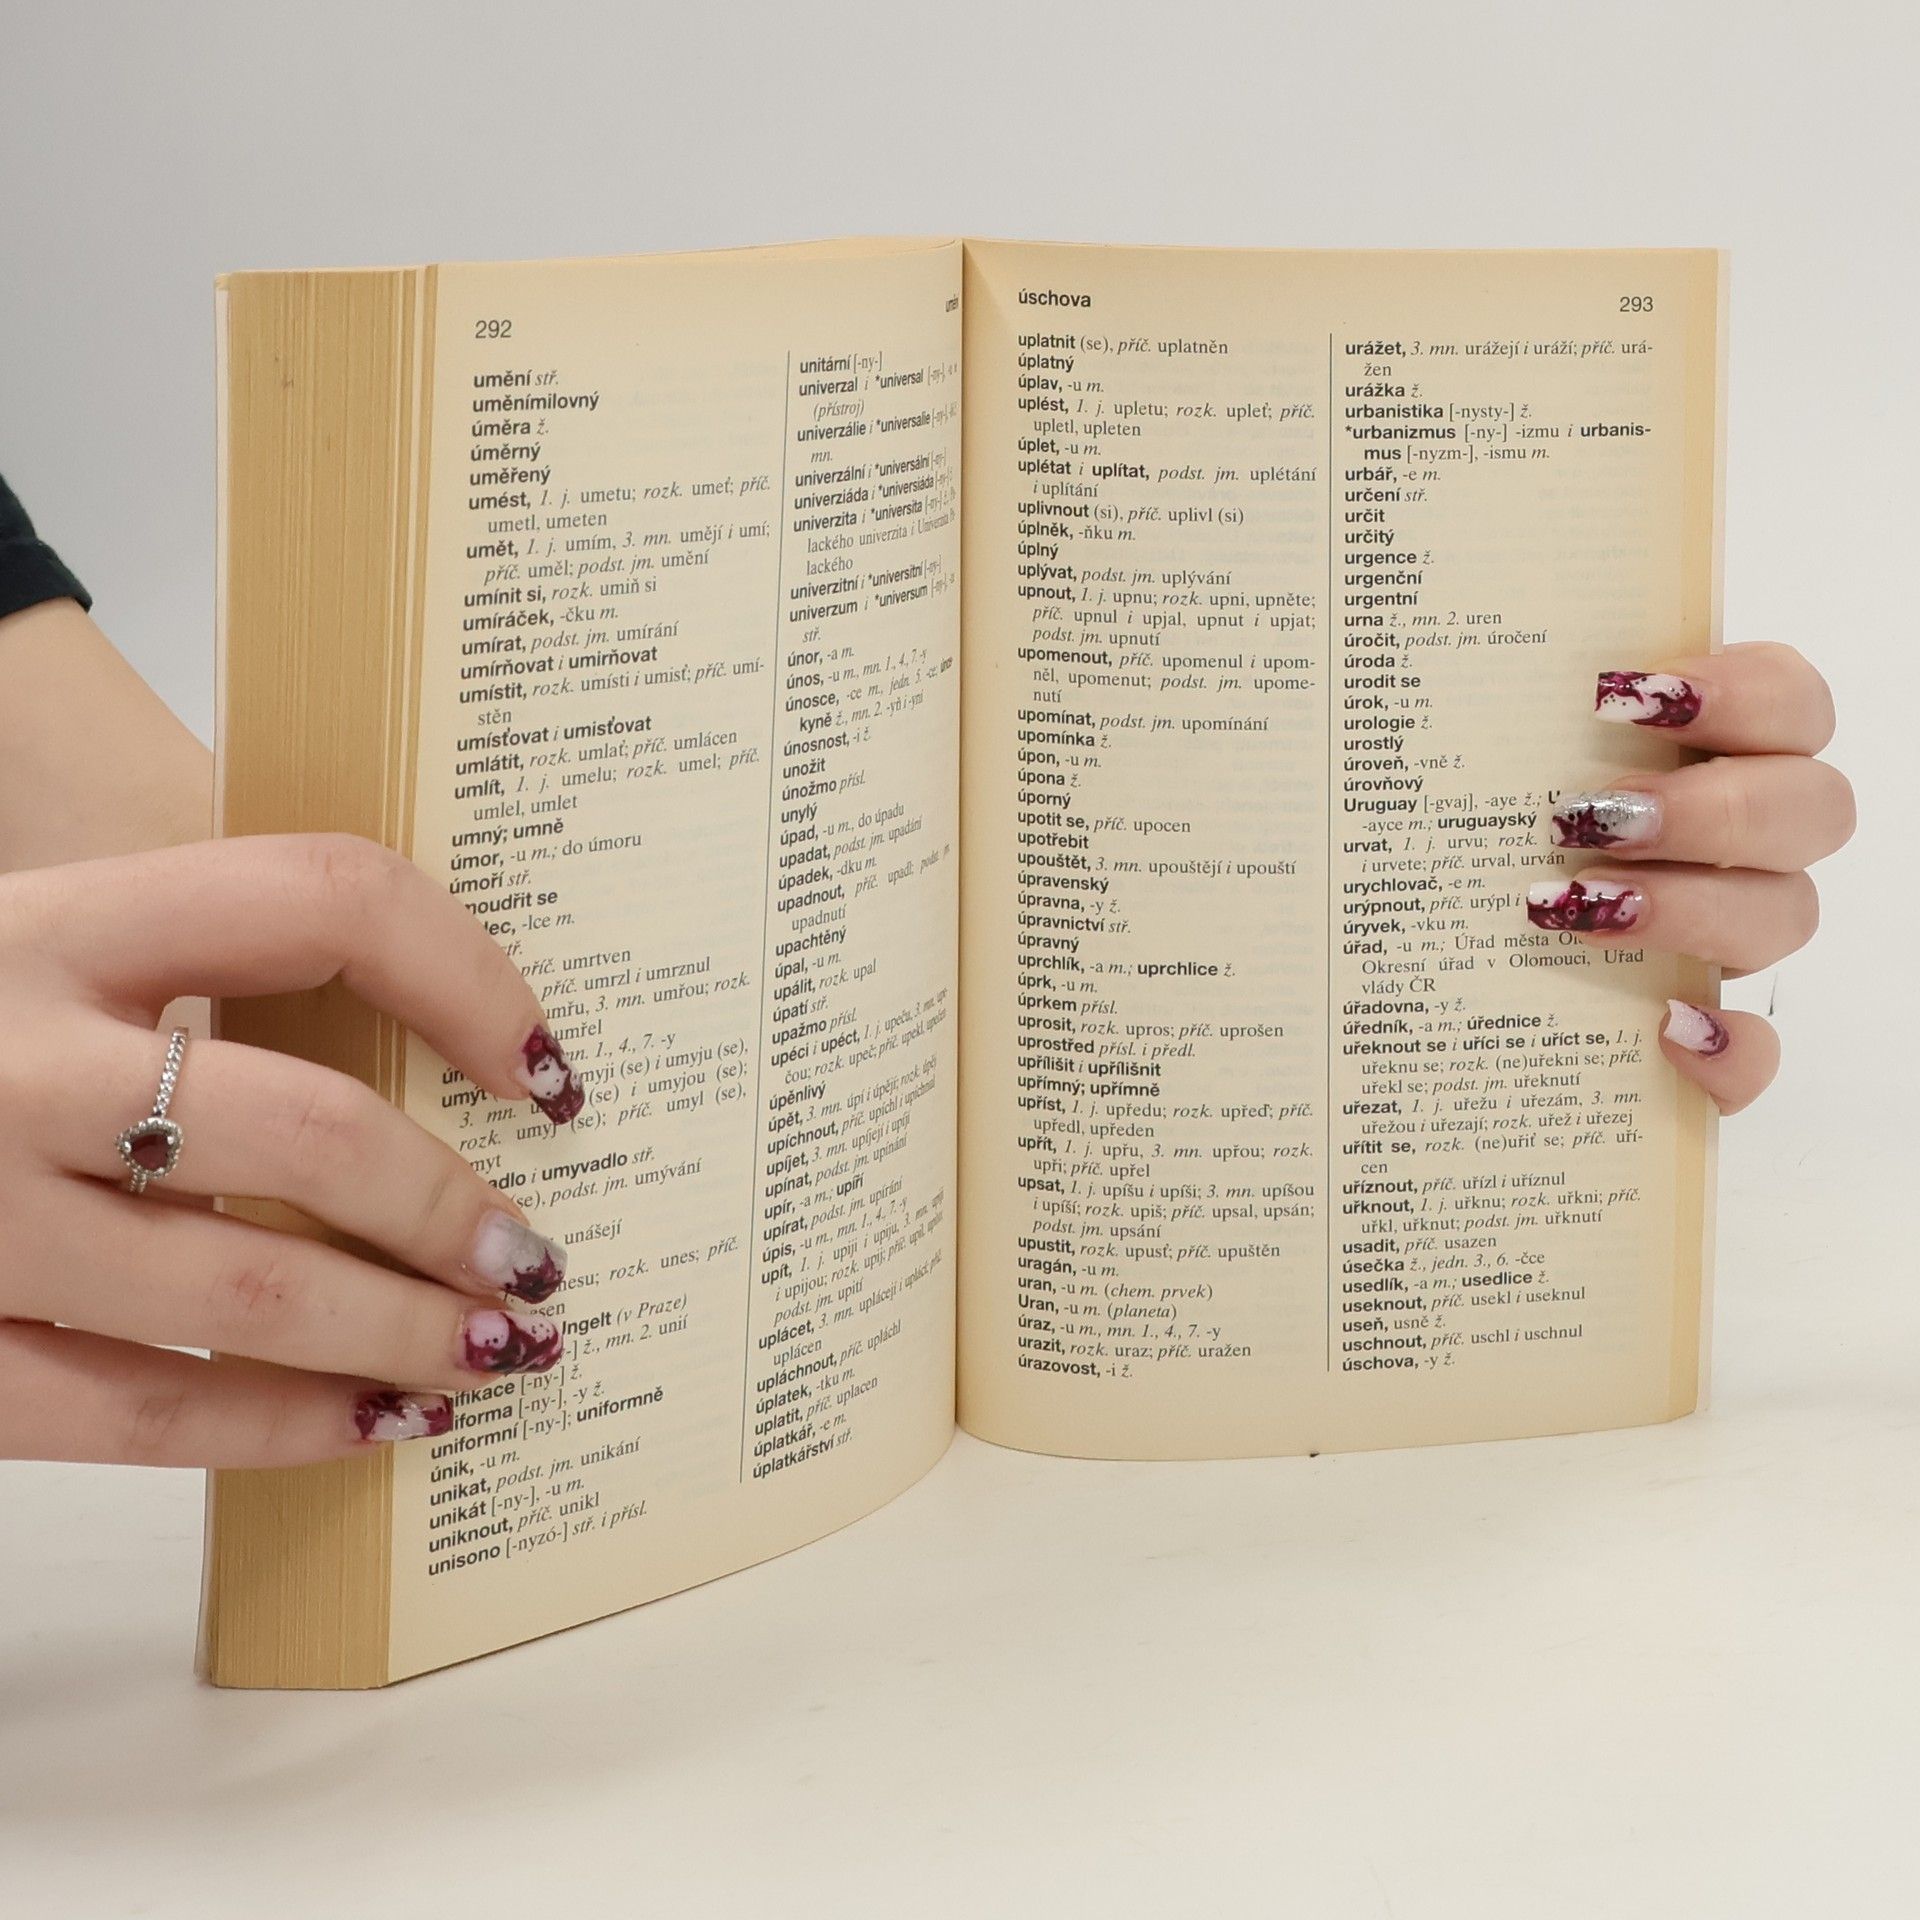 292
umění stř.
uměnímilovný
úměra ž.
úměrný
uměřený
umést, 1. j. umetu; rozk. umeť; příč.
umetl, umeten
umět, 1. j. umím, 3. mn. umějí i umí;
příč. uměl; podst. jm. umění
umínit si, rozk. umiň si
umíráček, -čku m.
umírat, podst. jm. umírání
umírňovat i umirňovat
umístit, rozk. umísti i umisť; příč. umí-
stěn
umísťovat i umisťovat
umlátit, rozk. umlať; příč. umlácen
umlít, 1. j. umelu; rozk. umel; příč.
umlel, umlet
umný; umně
úmor, -u m.; do úmoru
úmoří stř.
moudřit se
lec, -lce m.
stř.
příč. umrtven
příč. umrzl i umrznul
umřu, 3. mn. umřou; rozk.
umřel
mn. 1., 4., 7. -y
umyji (se) i umyju (se),
3. mn. (se) i umyjou (se);
rozk. umyj (se); příč. umyl (se),
myt
adlo i umyvadlo stř.
(se), podst. jm. umývání
unášejí
nesu; rozk. unes; příč.
esen
Ingelt (v Praze)
-] ž., mn. 2. unií
nifikace [-ny-] ž.
iforma [-ny-], -y ž.
uniformní [-ny-]; uniformně
únik, -u m.
unikat, podst. jm. unikání
unikát [-ny-], -u m.
uniknout, příč. unikl
unisono [-nyzó-] stř. i přísl.
unitární [-ny-]
univerzal i *universal [-ny-],
(přístroj)
univerzálie i *universalie [-ny-],
mn.
univerzální i *universální [-ny-]
univerziáda i *universiáda [-ny-]
univerzita i *universita [-ny-] ž.
lackého univerzita i Univerzita
lackého
univerzitní i *universitní [-ny-]
univerzum i *universum [-ny-],
stř.
únor, -a m.
únos, -u m., mn. 1., 4., 7. -y
únosce, -ce m., jedn. 5. -ce; únos-
kyně ž., mn. 2. -yň i -yní
únosnost, -i ž.
unožit
únožmo přísl.
unylý
úpad, -u m., do úpadu
upadat, podst. jm. upadání
úpadek, -dku m.
upadnout, příč. upadl; podst. jm.
upadnutí
upachtěný
úpal, -u m.
upálit, rozk. upal
úpatí stř.
upažmo přísl.
upéci i upéct, 1. j. upeču, 3. mn. upe-
čou; rozk. upeč; příč. upekl, upečen
úpěnlivý
úpět, 3. mn. úpí i úpějí; rozk. úpěj
upíchnout, příč. upíchl i upíchnul
upíjet, 3. mn. upíjejí i upíjí
upínat, podst. jm. upínání
upír, -a m.; upíří
upírat, podst. jm. upírání
úpis, -u m., mn. 1., 4., 7. -y
upít, 1. j. upiji i upiju, 3. mn. upijí
i upijou; rozk. upij; příč. upil, upit;
podst. jm. upití
uplácet, 3. mn. uplácejí i uplácí; příč.
uplácen
upláchnout, příč. upláchl
úplatek, -tku m.
uplatit, příč. uplacen
úplatkář, -e m.
úplatkářství stř.
úschova
293
uplatnit (se), příč. uplatněn
úplatný
úplav, -u m.
uplést, 1. j. upletu; rozk. upleť; příč.
upletl, upleten
úplet, -u m.
uplétat i uplítat, podst. jm. uplétání
i uplítání
uplivnout (si), příč. uplivl (si)
úplněk, -ňku m.
úplný
uplývat, podst. jm. uplývání
upnout, 1. j. upnu; rozk. upni, upněte;
příč. upnul i upjal, upnut i upjat;
podst. jm. upnutí
upomenout, příč. upomenul i upom-
něl, upomenut; podst. jm. upome-
nutí
upomínat, podst. jm. upomínání
upomínka ž.
úpon, -u m.
úpona ž.
úporný
upotit se, příč. upocen
upotřebit
upouštět, 3. mn. upouštějí i upouští
úpravenský
úpravna, -y ž.
úpravnictví stř.
úpravný
uprchlík, -a m.; uprchlice ž.
úprk, -u m.
úprkem přísl.
uprosit, rozk. upros; příč. uprošen
uprostřed přísl. i předl.
upřílišit i upřílišnit
upřímný; upřímně
upříst, 1. j. upředu; rozk. upřeď; příč.
upředl, upředen
upřít, 1. j. upřu, 3. mn. upřou; rozk.
upři; příč. upřel
upsat, 1. j. upíšu i upíši; 3. mn. upíšou
i upíší; rozk. upiš; příč. upsal, upsán;
podst. jm. upsání
upustit, rozk. upusť; příč. upuštěn
uragán, -u m.
uran, -u m. (chem. prvek)
Uran, -u m. (planeta)
úraz, -u m., mn. 1., 4., 7. -y
urazit, rozk. uraz; příč. uražen
úrazovost, -i ž.
urážet, 3. mn. urážejí i uráží; příč. urá-
žen
urážka ž.
urbanistika [-nysty-] ž.
*urbanizmus [-ny-] -izmu i urbanis-
mus [-nyzm-], -ismu m.
urbář, -e m.
určení stř.
určit
určitý
urgence ž.
urgenční
urgentní
urna ž., mn. 2. uren
úročit, podst. jm. úročení
úroda ž.
urodit se
úrok, -u m.
urologie ž.
urostlý
úroveň, -vně ž.
úrovňový
Uruguay [-gvaj], -aye ž.; U
-ayce m.; uruguayský
urvat, 1. j. urvu; rozk.
i urvete; příč. urval, urván
urychlovač, -e m.
urýpnout, příč. urýpl i
úryvek, -vku m.
úřad, -u m.; Úřad města
Okresní úřad v Olomouci, Úřad
vlády ČR
úřadovna, -y ž.
úředník, -a m.; úřednice ž.
uřeknout se i uříci se i uříct se, 1. j.
uřeknu se; rozk. (ne)uřekni se; příč.
uřekl se; podst. jm. uřeknutí
uřezat, 1. j. uřežu i uřezám, 3. mn.
uřežou i uřezají; rozk. uřež i uřezej
uřítit se, rozk. (ne)uřiť se; příč. uří-
cen
uříznout, příč. uřízl i uříznul
uřknout, 1. j. uřknu; rozk. uřkni; příč.
uřkl, uřknut; podst. jm. uřknutí
usadit, příč. usazen
úsečka ž., jedn. 3., 6. -čce
usedlík, -a m.; usedlice ž.
useknout, příč. usekl i useknul
useň, usně ž.
uschnout, příč. uschl i uschnul
úschova, -y ž.